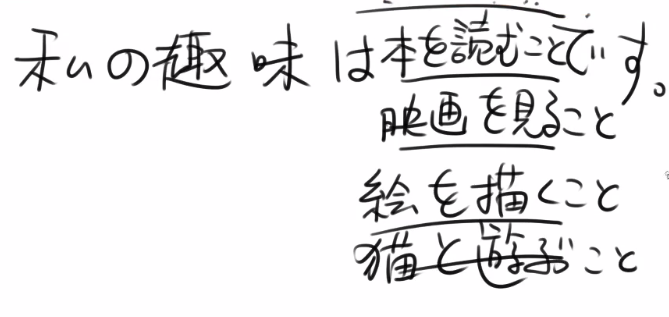 私の趣味は本を読むことです。
映画を見ること
絵を描くこと
猫と遊ぶこと